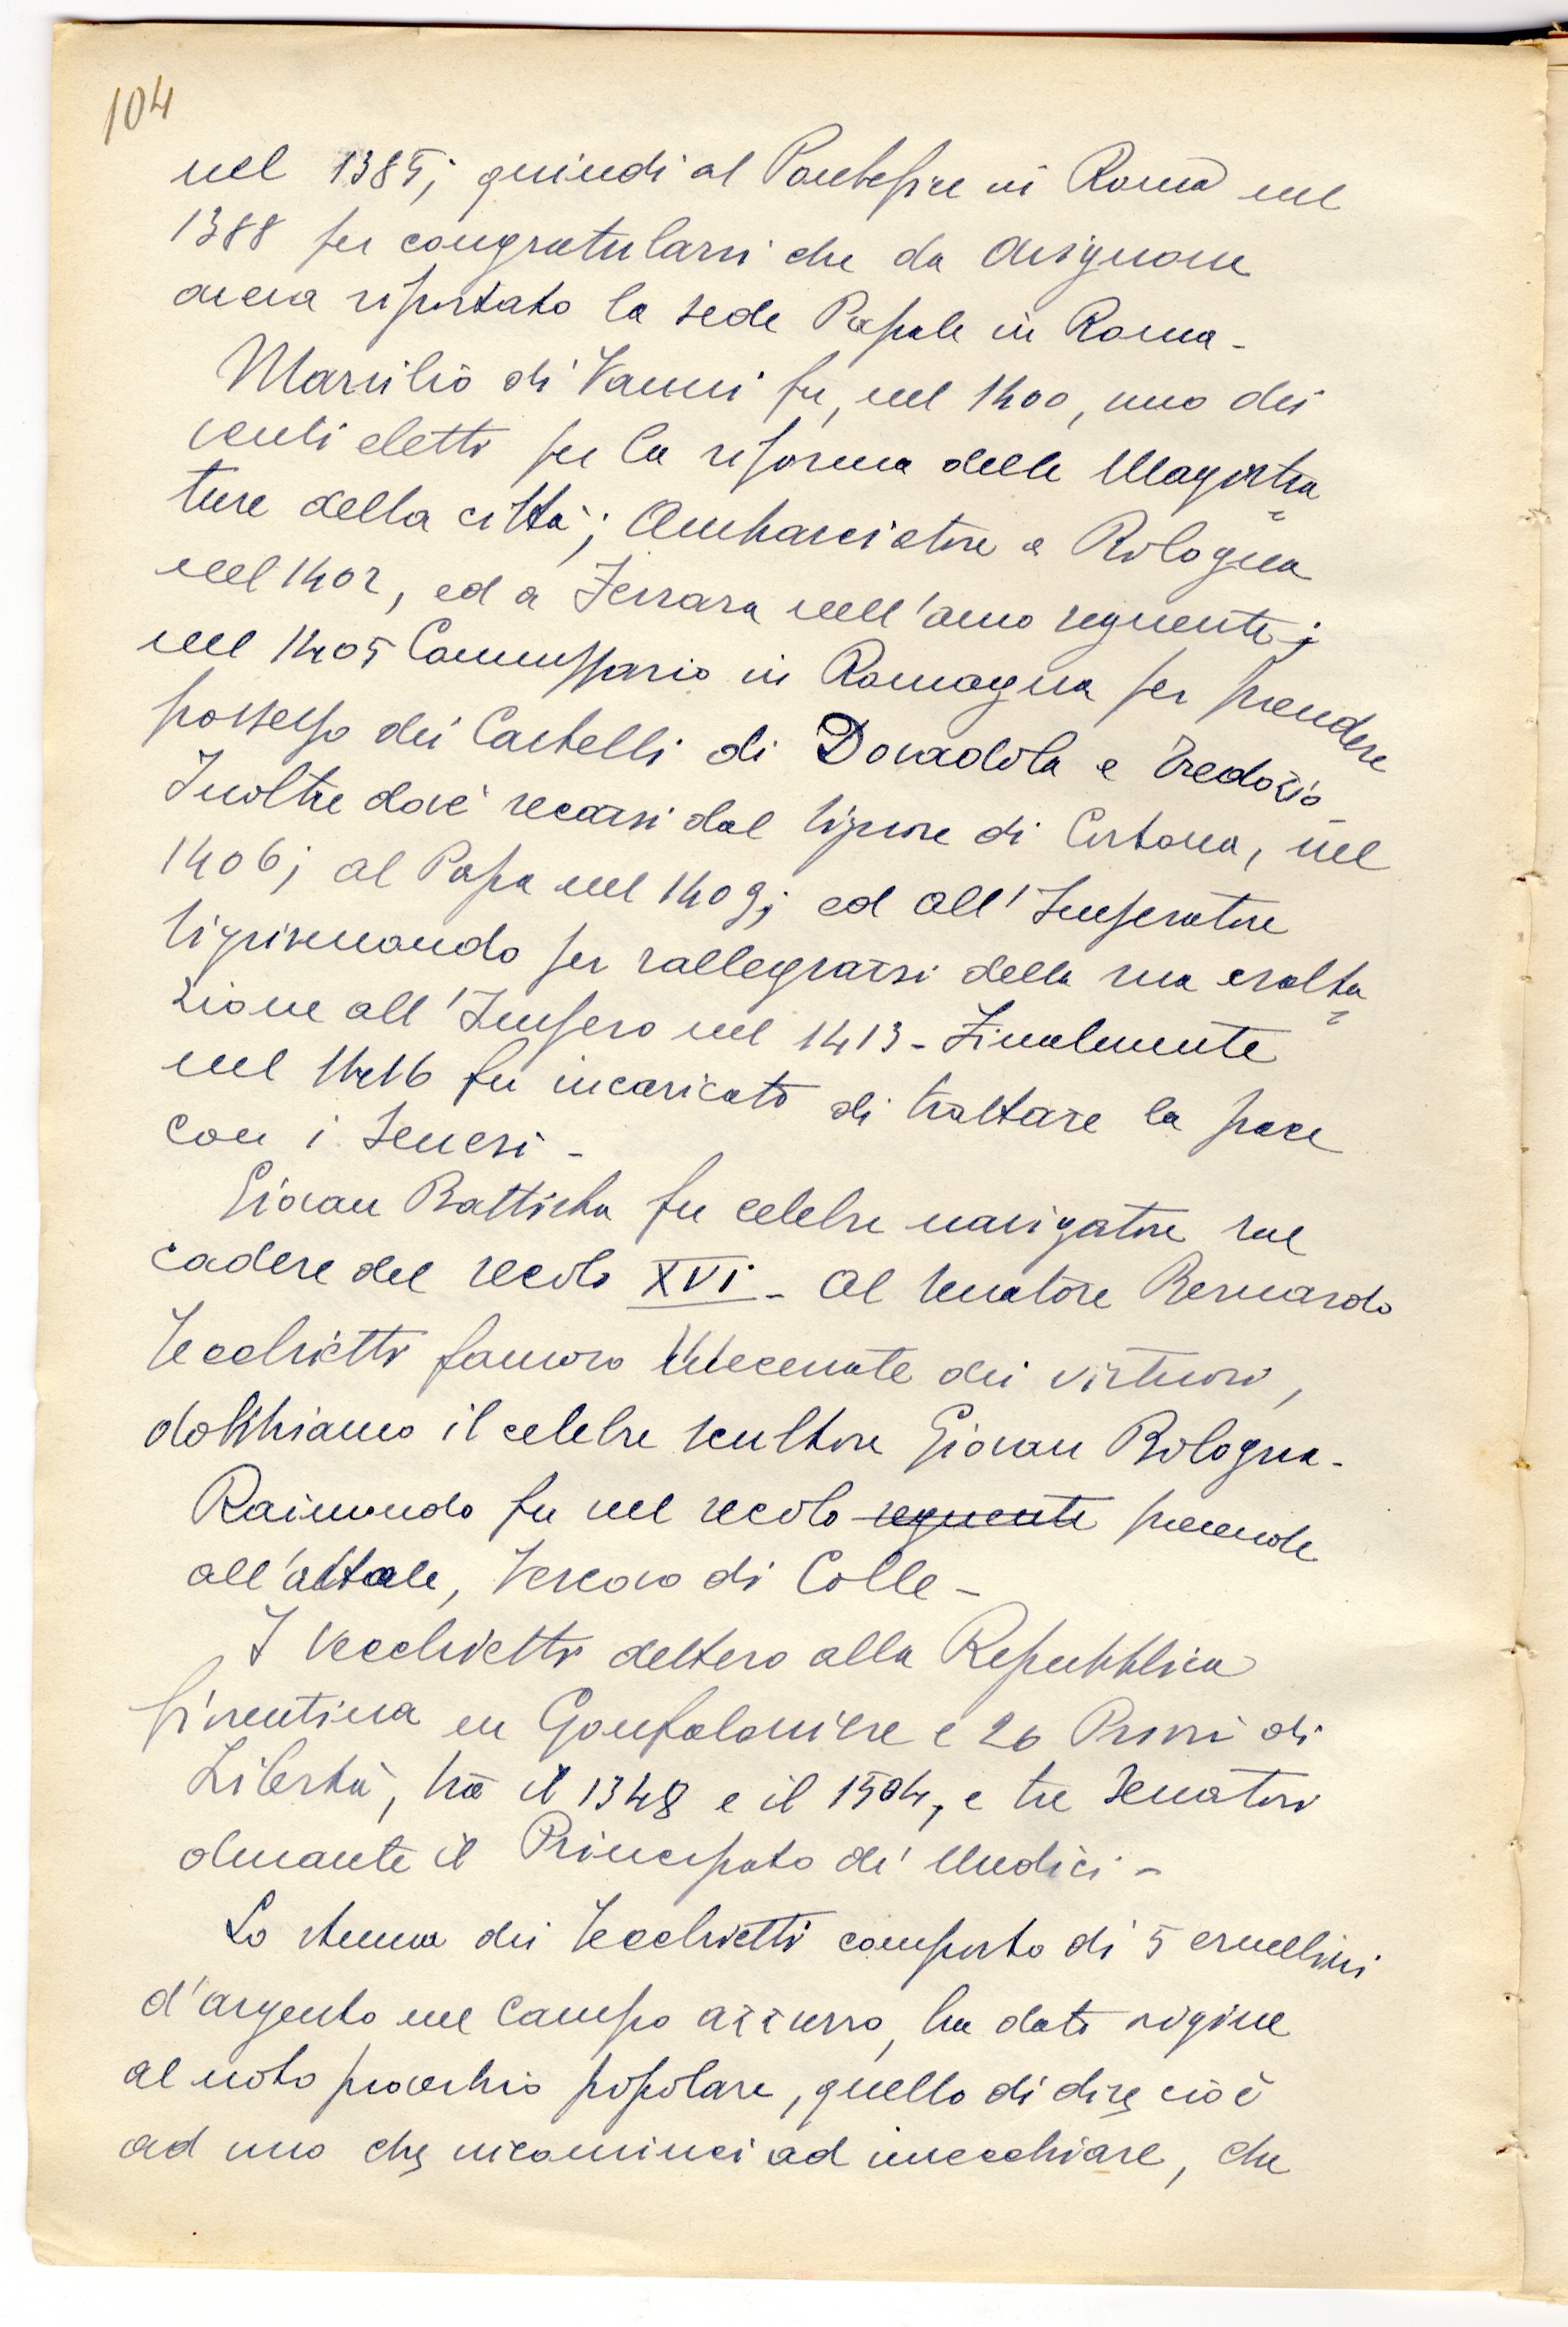 104
nel 1385; quindi al Pontefice in Roma nel
1388 per congratularsi che da Avignone
aveva riportato la sede Papale in Roma -
Marsilio di Vanni fu, nel 1400, uno dei
venti eletti per la riforma delle Magistra=
ture della città; Ambasciatore a Bologna
nel 1402, ed a Ferrara nell'anno seguente;
nel 1405 Commissario in Romagna per prendere
possesso dei Castelli di Dovadola e Tredozio -
Inoltre dové recarsi dal Signore di Cortona, nel
1406; al Papa nel 1409; ed all'Imperatore
Sigismondo per rallegrarsi della sua esalta=
zione all'Impero nel 1413 - Finalmente
nel 1416 fu incaricato di trattare la pace
con i Senesi -
Giovan Battista fu celebre navigatore sul
cadere del secolo XVI - Al Senatore Bernardo
Vecchietti famoso Mecenate dei virtuosi,
dobbiamo il celebre scultore Giovan Bologna -
Raimondo fu nel secolo seguente precende
all'attale, Vescovo di Colle -
I Vecchietti dettero alla Repubblica
fiorentina un Gonfaloniere e 20 Priori di
Libertà, tra il 1348 e il 1504, e tre Senatori
durante il Principato de' Medici -
Lo stemma dei Vecchietti composto di 5 ermellini
d'argento nel campo azzurro, ha dato origine
al noto proverbio popolare, quello di dire cioè
ad uno che incominci ad invecchiare, che